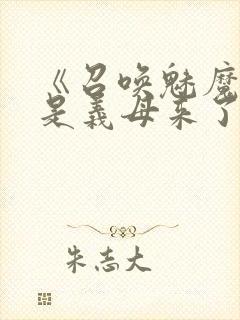 《召唤魅魔
是义母来了
朱志大